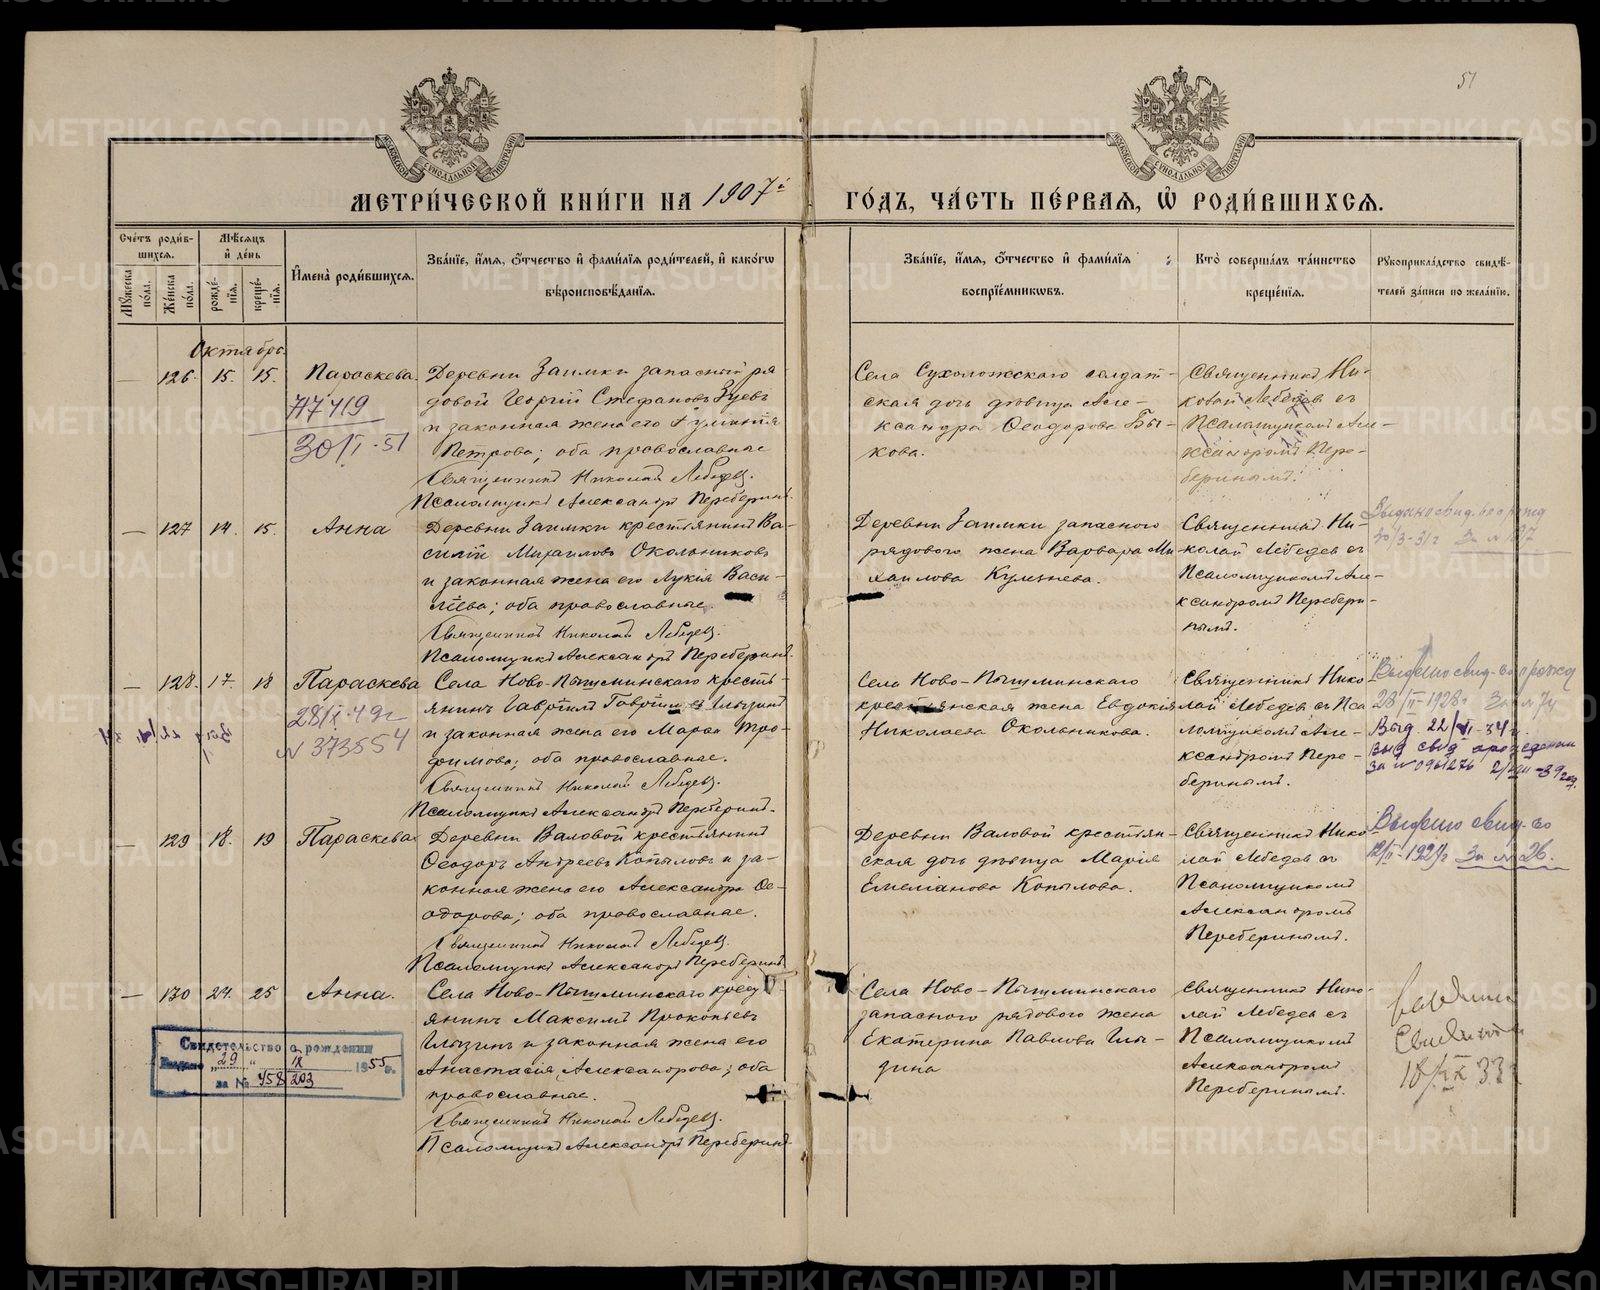 51
МЕТРИ́ЧЕСКОЙ КНИ́ГИ НА 1907й
ГО́ДЪ, ЧА́СТЬ ПЕ́РВАЯ, Ѿ РОДИ́ВШИХСЯ.
Сче́тъ роди́в-
шихся.
Мѣ́сяцъ
и҆ де́нь
И҆мена̀ роди́вшихся.
Зва́нїе, и҆́мя, о҆́тчество и҆ фами́лїя роди́телей, и҆ како́гѡ
вѣроисповѣ́данїя.
Му́жеска по́ла.
Же́нска по́ла.
рожде́-нїя.
креще́-нїя.
Зва́нїе, и҆́мя, о҆́тчество и҆ фами́лїя
воспрїе́мниковъ.
Кто̀ соверша́лъ та́инство
креще́нїя.
Рукоприкла́дство свидѣ́-
телей за́писи по жела́нїю.
Октябрь
— 126. 15. 15. Параскева.
717419
30/I-51
Деревни Заимки запасный ря
довой Георгій Стефановъ Зуевъ
и законная жена его
Петрова; оба православные
Священникъ Николай Лебедевъ.
Псаломщикъ Александръ Переберинъ.
Села Сухоложскаго солдат-
ская дочь дѣвица Але-
ксандра Ѳеодорова Бы-
кова.
Священникъ Ни-
колай Лебедев съ
Псаломщикомъ Але-
ксандромъ Пере-
беринымъ.
— 127 14. 15. Анна
Деревни Заимки крестьянинъ Ва-
силій Михаиловъ Окольниковъ
и законная жена его Лукія Васи-
ліева; оба православные.
Священникъ Николай Лебедевъ.
Псаломщикъ Александръ Переберинъ.
Деревни Заимки запасного
рядового жена Варвара Ми
хаилова Кулезнева.
Священникъ Ни-
колай Лебедев съ
Псаломщикомъ Але-
ксандромъ Перебери-
нымъ.
Выдано свид. во рожд
30/3-31г За № 107
— 128. 17. 18 Параскева
28/I-49г
№ 373554
Села Ново-Пышминскаго кресть-
янинъ Гавріилъ Глызинъ
и законная жена его Марѳа Тро-
фимова; оба православные.
Священникъ Николай Лебедевъ.
Псаломщикъ Александръ Переберинъ.
Села Ново-Пышминскаго
крестьянская жена Евдокія
Николаева Окольникова.
Священникъ Нико
лай Лебедев съ Пса
ломщикомъ Але-
ксандромъ Пере-
беринымъ.
Выдано свид-во о рожд
28/II-1928г За № 74
Выд 22/VI-34 г.
Выд свид о рождении
За № 0961276 2/VIII-39год.
— 129 18. 19 Параскева
Деревни Валовой крестьянинъ
Ѳеодоръ Андреевъ Копыловъ и за-
конная жена его Александра Ѳе-
одорова; оба православные.
Священникъ Николай Лебедевъ.
Псаломщикъ Александръ Переберинъ
Деревни Валовой крестьян-
ская дочь дѣвица Марія
Емеліанова Копылова.
Священникъ Нико-
лай Лебедев съ
Псаломщикомъ
Александромъ
Переберинымъ.
Выдано свид-во
12/II-1929г За № 26.
— 130 24. 25 Анна.
Свидетельство о рождении
Выдано „29“ IX 1955г.
за № 458203
Села Ново-Пышминскаго крест
янинъ Максимъ Прокопьевъ
Глызинъ и законная жена его
Анастасія Александрова; оба
православные.
Священникъ Николай Лебедевъ.
Псаломщикъ Александръ Переберинъ.
Села Ново-Пышминскаго
запасного рядового жена
Екатерина Павлова Глы-
зина
Священникъ Нико-
лай Лебедев съ
Псаломщикомъ
Александромъ
Переберинымъ.
18/IX 33г
METRIKI.GASO-URAL.RU